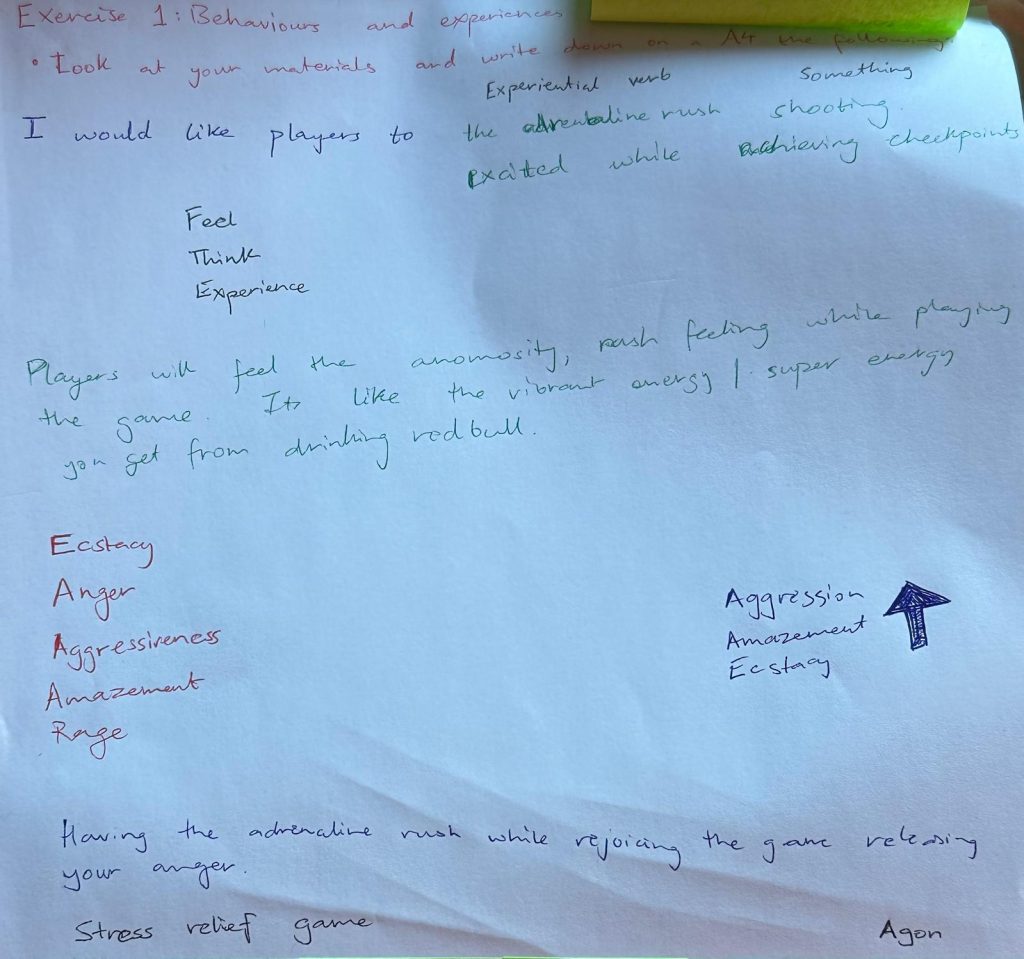 Exercise 1: Behaviours and experiences
• Look at your materials and write down on a A4 the following:
Experiential verb Something
I would like players to the adrenaline rush shooting.
excited while achieving checkpoints
Feel
Think
Experience
Players will feel the anomosity, rush feeling while playing
the game. Its like the vibrant energy / super energy
you get from drinking redbull.
Ecstacy
Anger
Aggressiveness
Amazement
Rage
Aggression
Amazement
Ecstacy
Having the adrenaline rush while rejoicing the game releasing
your anger.
Stress relief game
Agon